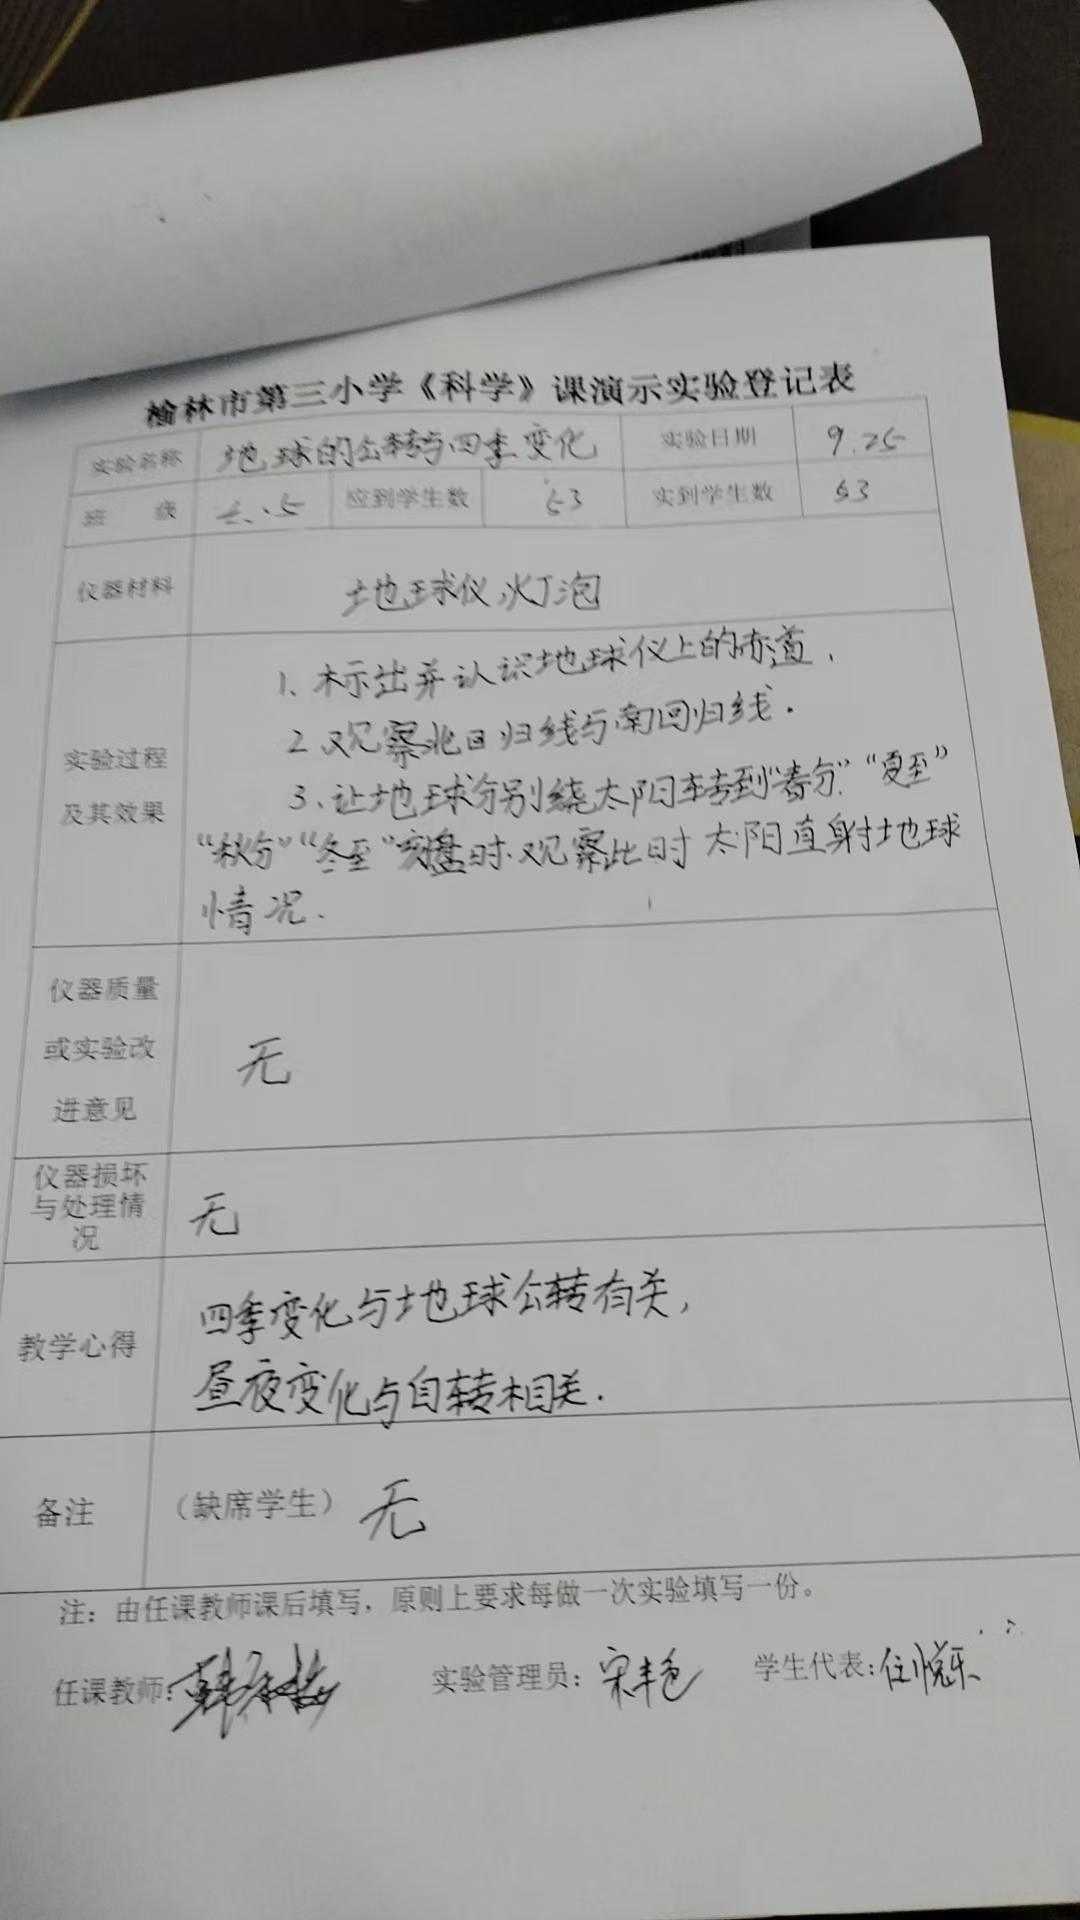 榆林市第三小学《科学》课演示实验登记表
实验名称 地球的公转与四季变化 实验日期 9.25
班 级 六.5 应到学生数 53 实到学生数 53
仪器材料 地球仪、灯泡
实验过程
及其效果
1、标出并认识地球仪上的赤道.
2 观察北回归线与南回归线.
3、让地球分别绕太阳转到“春分”“夏至”
“秋分”“冬至”刻盘时.观察此时太阳直射地球
情况.
仪器质量
或实验改
进意见
无
仪器损坏
与处理情
况
无
教学心得
四季变化与地球公转有关,
昼夜变化与自转相关.
备注 (缺席学生) 无
注：由任课教师课后填写，原则上要求每做一次实验填写一份。
任课教师: 实验管理员: 宋丰色 学生代表: 任悦乐